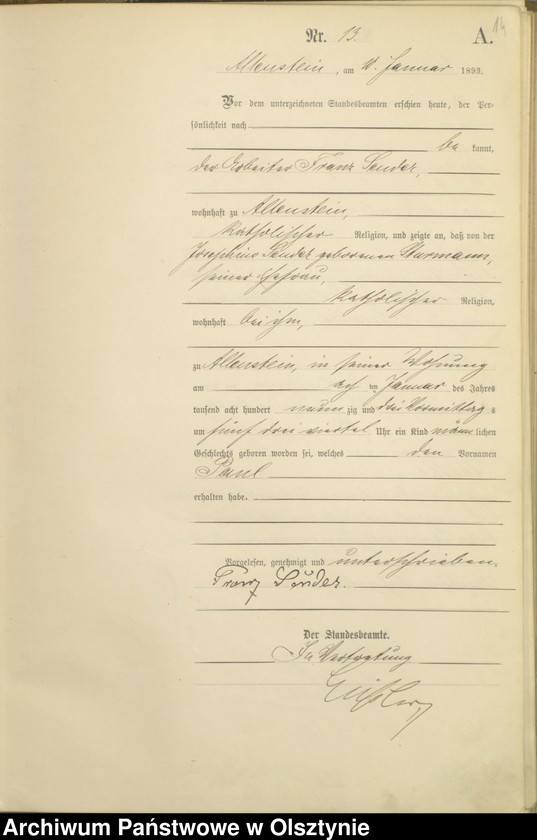 14
Nr. 13. A.
Allenstein, am Januar 1893.
Vor dem unterzeichneten Standesbeamten erschien heute, der Per-
sönlichkeit nach
be kannt,
der Arbeiter Franz Sender,
wohnhaft zu Allenstein,
katholischer Religion, und zeigte an, daß von der
Josephine Sender geborenen
seiner Ehefrau,
katholischer Religion,
wohnhaft bei ihm,
zu Allenstein, in seiner Wohnung
am ten Januar des Jahres
tausend acht hundert neun zig und drei Vormittag s
um fünf drei viertel Uhr ein Kind männ lichen
Geschlechts geboren worden sei, welches den Vornamen
Paul
erhalten habe.
Vorgelesen, genehmigt und unterschrieben.
Franz Sender.
Der Standesbeamte.
In Vertretung
Archiwum Państwowe w Olsztynie